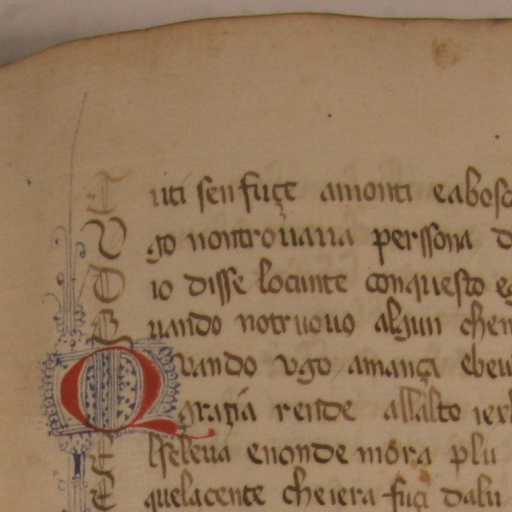 Tuti sen fuçe amonti e abosc
Vgo non trouaua perssona d
Dio disse lo cunte con questo e
Quando no truouo algun chen
Quando vgo a mança e beu
E graçia rende all alto ier
El se leua e non de mora plu
E quela çente che iera fuçi dalu